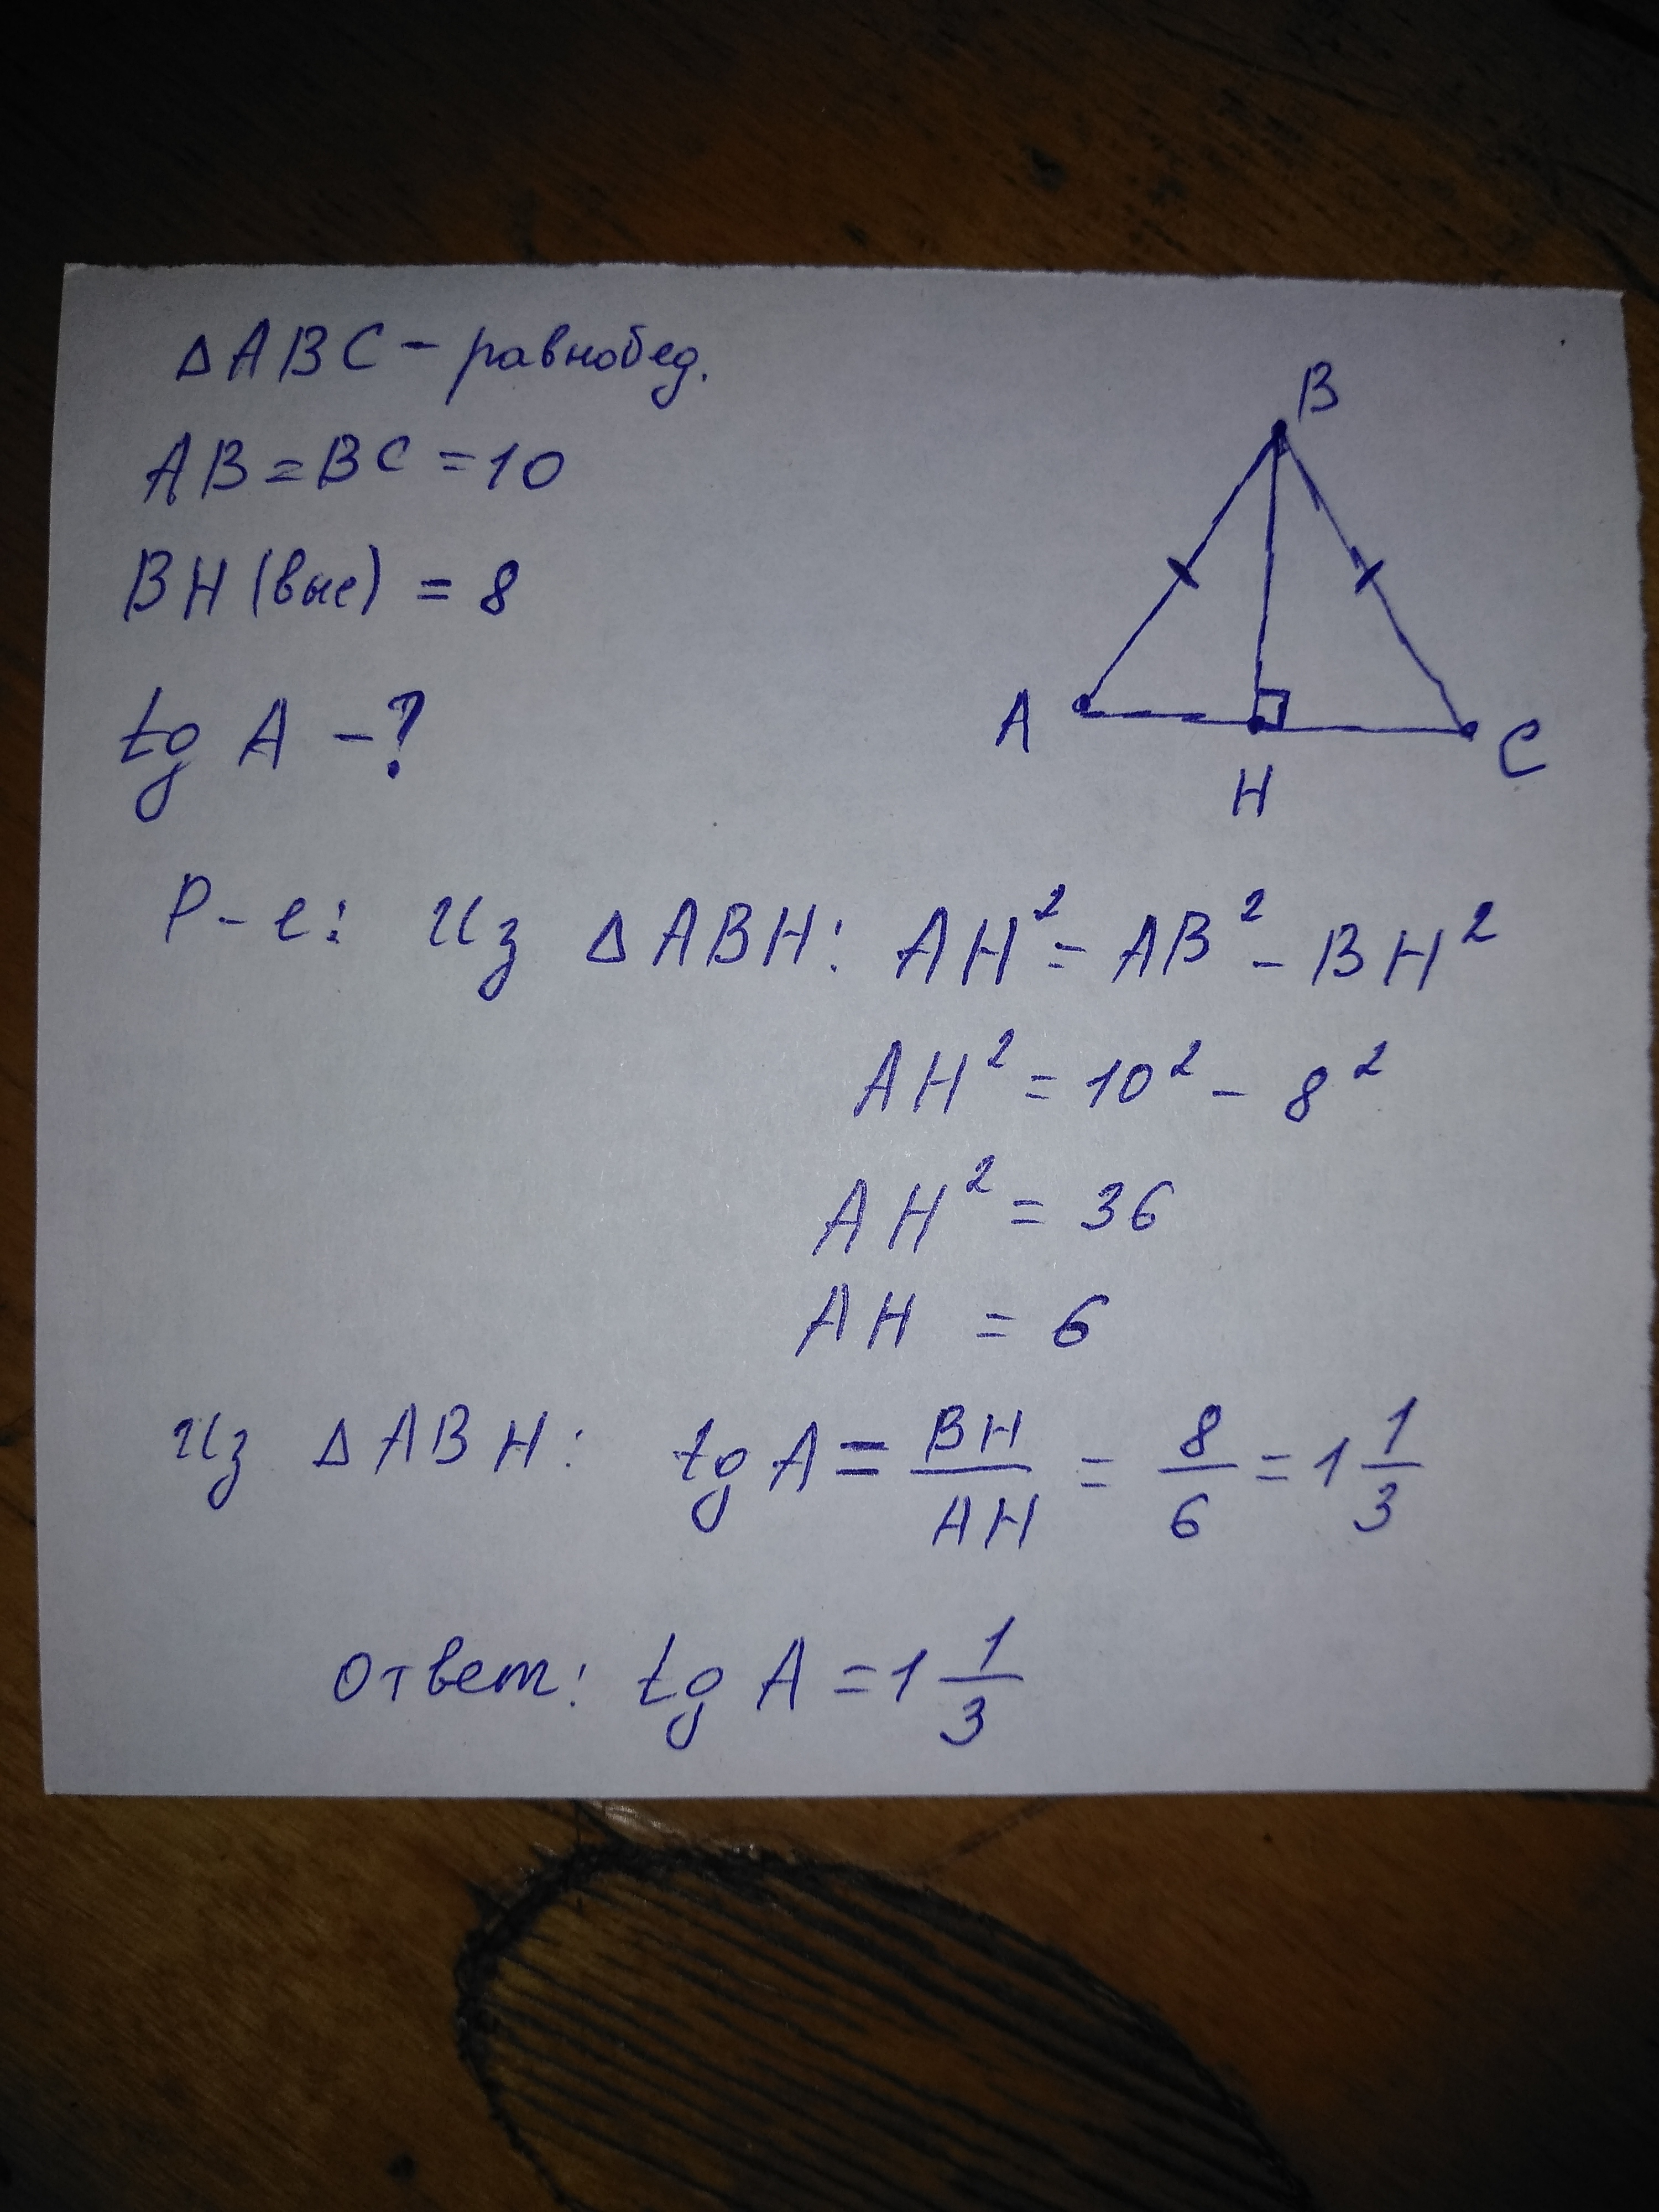 △ABC - равнобед.
AB = BC = 10
BH (выс) = 8
tg A - ?
B
A
H
C
Р-е: Из △ABH: AH² = AB² - BH²
AH² = 10² - 8²
AH² = 36
AH = 6
Из △ABH: tg A = BH/AH = 8/6 = 1 1/3
Ответ: tg A = 1 1/3